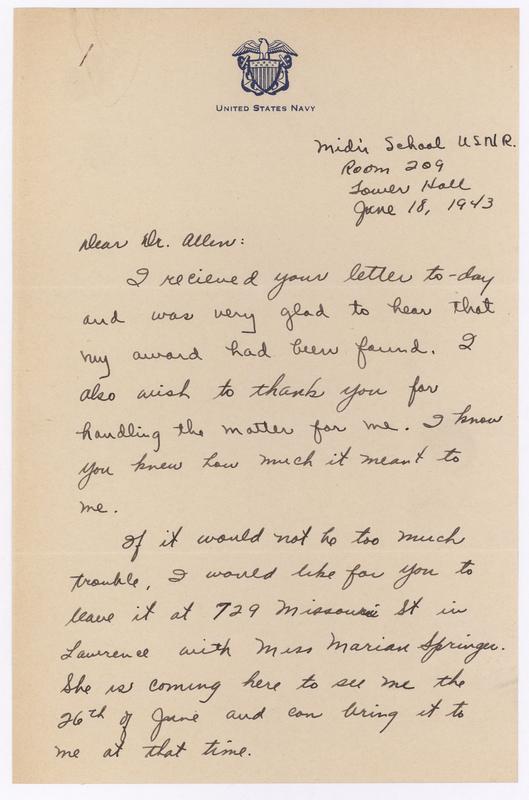 UNITED STATES NAVY
Mid'n School U.S.N.R.
Room 209
Tower Hall
June 18, 1943
Dear Dr. Allen:
I recieved your letter to-day
and was very glad to hear that
my award had been found. I
also wish to thank you for
handling the matter for me. I know
you knew how much it meant to
me.
If it would not be too much
trouble, I would like for you to
leave it at 729 Missouri St in
Lawrence with Miss Marian Springer.
She is coming here to see me the
26th of June and can bring it to
me at that time.